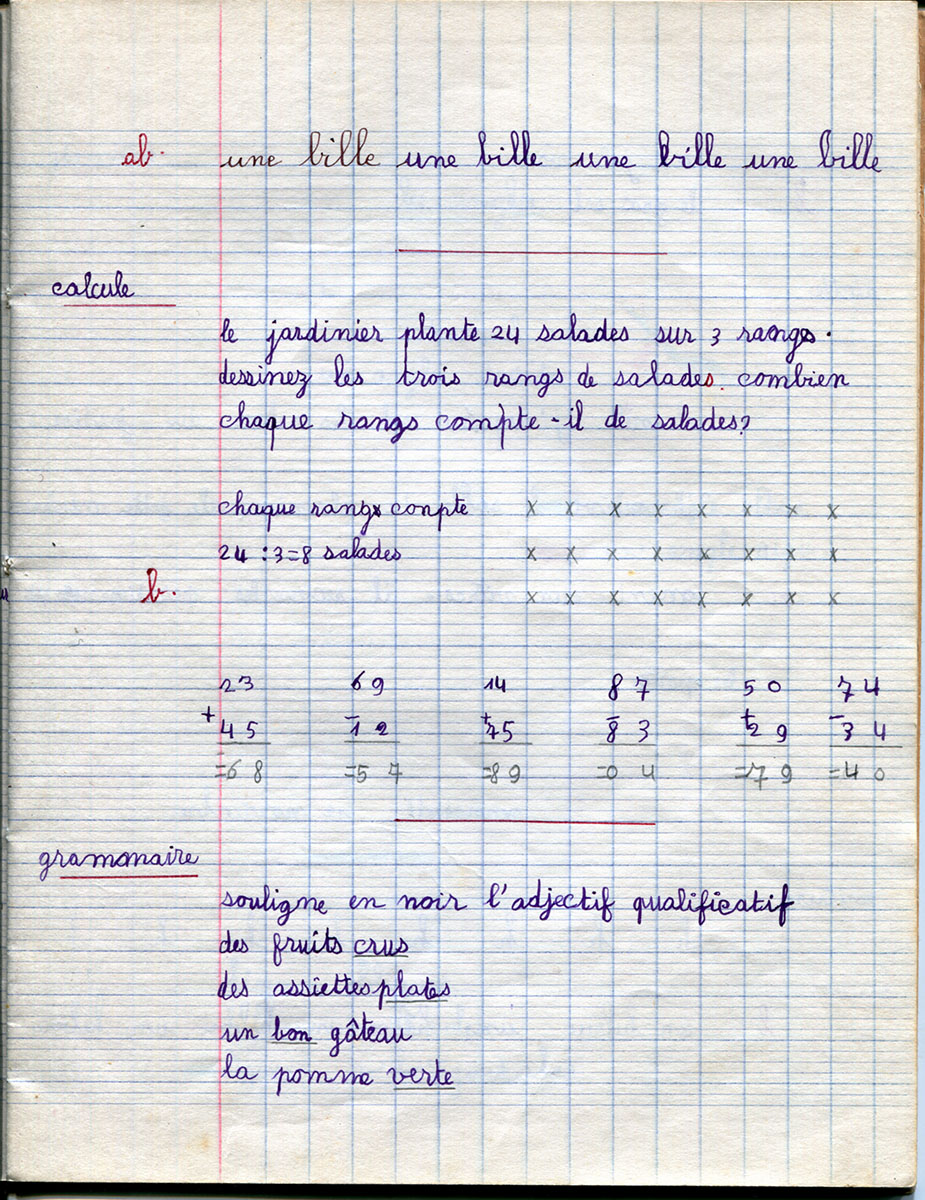 ab. une bille une bille une bille une bille
calcule
le jardinier plante 24 salades sur 3 rangs.
dessinez les trois rangs de salades. combien
chaque rangs compte-il de salades?
chaque rangs conpte x x x x x x x x
24 : 3 = 8 salades x x x x x x x x
b. x x x x x x x x
23 69 14 87 50 74
+ 45 - 12 + 75 - 83 + 29 - 34
= 68 = 57 = 89 = 04 = 79 = 40
grammaire
souligne en noir l'adjectif qualificatif
des fruits crus
des assiettes plates
un bon gâteau
la pomme verte